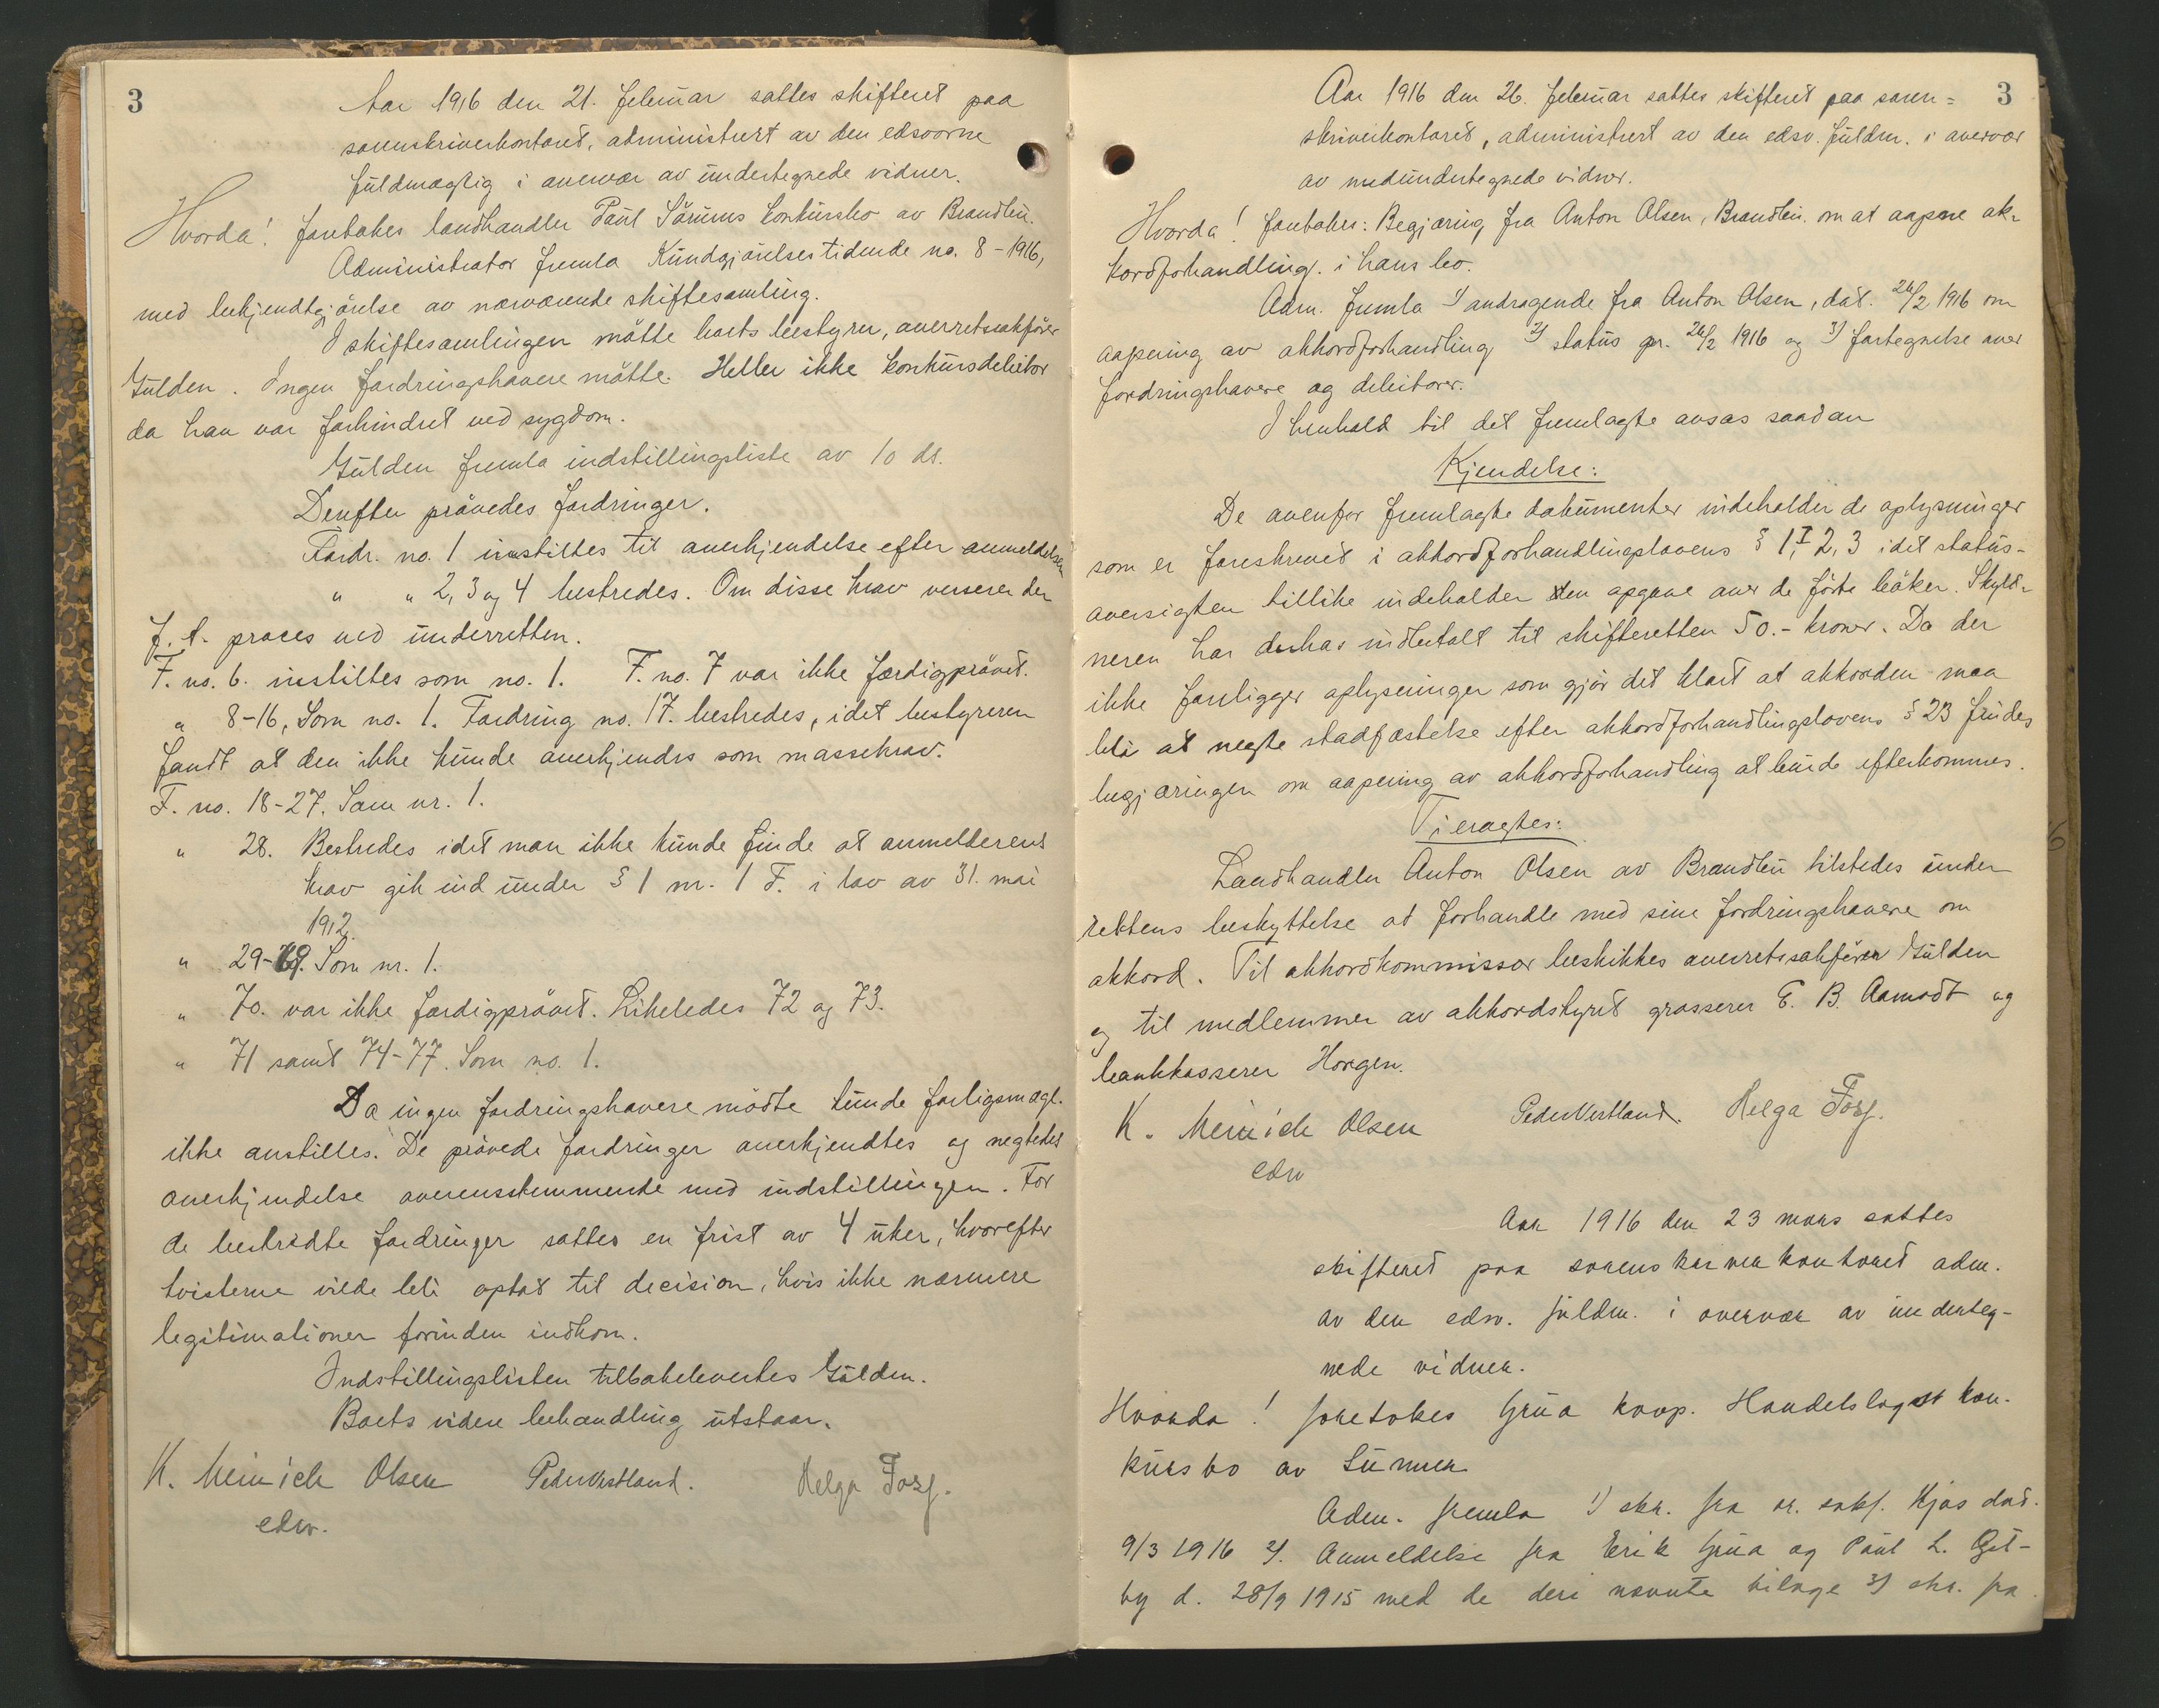 3
Aar 1916 den 21. februar sattes skifteret paa
sorenskriverkontoret, administrert av den edsvorne
fuldmægtig i overvær av undertegnede vidner.
Hvorda! foretokes landhandler Paul Sörums konkursbo av Brandbu.
Administrator fremla Kundgjörelsestidende no. 8 - 1916,
med bekjendtgjörelse av nærværende skiftesamling.
I skiftesamlingen mötte boets bestyrer, overretssakförer
Gulden. Ingen fordringshavere mötte. Heller ikke konkursdebitor
da han var forhindret ved sygdom.
Gulden fremla indstillingsliste av 10 ds.
Derefter prövedes fordringer.
Fordr. no. 1 instilles til anerkjendelse efter anmeldelsen
" " 2, 3 og 4 bestredes. Om disse krav verserer der
f. t. proces ved underretten.
F. no. 6. instilles som no. 1. F. no. 7 var ikke færdigprövet.
" 8-16, Som no. 1. Fordring no. 17. bestredes, idet bestyreren
fandt at den ikke kunde anerkjendes som massekrav.
F. no. 18-27. Som nr. 1.
" 28. Bestredes idet man ikke kunde finde at anmelderens
krav gik ind under § 1 nr. 1 F. i lov av 31. mai
1912.
" 29-69. Som nr. 1.
" 70. var ikke færdigprövet. Likeledes 72 og 73.
" 71 samt 74-77. Som no. 1.
Da ingen fordringshavere mödte kunde forligsmægl.
ikke anstilles. De prövede fordringer anerkjendtes og negtedes
anerkjendelse overensstemmende med indstillingen. For
de bestridte fordringer sattes en frist av 4 uker, hvorefter
tvisterne vilde bli optat til decision, hvis ikke nærmere
legitimationer forinden indkom.
Indstillingslisten tilbakelevertes Gulden.
Boets videre behandling utstaar.
K. Meinich Olsen Peder Vestland. Helga Fosz.
edsv.
3
Aar 1916 den 26. februar sattes skifteret paa soren=
skriverkontoret, administrert av den edsv. fuldm. i overvær
av medundertegnede vidner.
Hvorda! foretokes: Begjæring fra Anton Olsen, Brandbu. om at aapne ak-
kordforhandling. i hans bo.
Adm. fremla 1) andragende fra Anton Olsen, dat. 26/2 1916 om
aapning av akkordforhandling 2) status pr. 26/2 1916 og 3) fortegnelse over
fordringshavere og debitorer.
I henhold til det fremlagte avsas saadan
Kjendelse:
De ovenfor fremlagte dokumenter indeholder de oplysninger
som er foreskrevet i akkordforhandlingslovens § 1, I 2, 3 idet status-
oversigten tillike indeholder den opgave over de förte böker. Skyld-
neren har derhos indbetalt til skifteretten 50.- kroner. Da der
ikke foreligger oplysninger som gjör det klart at akkorden maa
bli at negte stadfæstelse efter akkordforhandlingslovens § 23 findes
begjæringen om aapning av akkordforhandling at burde efterkommes.
Ti eragtes:
Landhandler Anton Olsen av Brandbu tilstedes under
rettens beskyttelse at forhandle med sine fordringshavere om
akkord. Til akkordkommissær beskikkes overretssakförer Gulden
og til medlemmer av akkordstyret grosserer E. B. Aamodt og
bankkasserer Horgen.
K. Meinich Olsen Peder Vestland. Helga Fosz.
edsv
Aar 1916 den 23 mars sattes
skifteret paa sorenskriverkontoret adm.
av den edsv. fuldm. i overvær av underteg-
nede vidner.
Hvorda! foretokes Grua koop. Handelslags kon-
kursbo av Lunner
Adm. fremla 1) skr. fra or. sakf. Kjos dat.
9/3 1916 2). Anmeldelse fra Erik Grua og Paul L.
by d. 28/9 1915 med de deri nævnte bilage 3) skr. fra